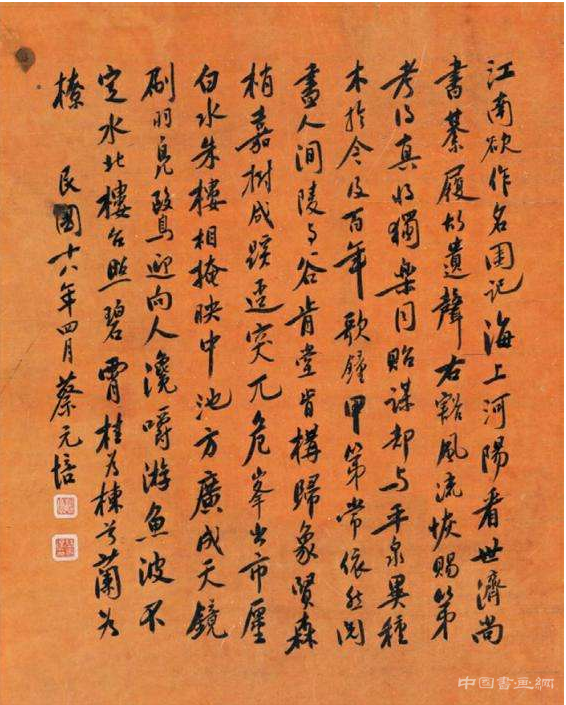 江南欲作名園記海上河陽看世濟尚
書綦履遺聲右豁風流恢賜第
考得真將獨樂同貽謀却与平泉異種
木於今及百年歌鐘甲第常依然閱
盡人間陵与谷肯堂肯構歸象賢森
梢嘉樹成蹊徑突兀危峯出市廛
白水朱樓相掩映中池方廣成天鏡
刷羽鳧鷖迎向人瀺嚼游魚波不
定水北樓台照碧霄桂为棟兮蘭为
橑 民國十八年四月蔡元培
中国書画網